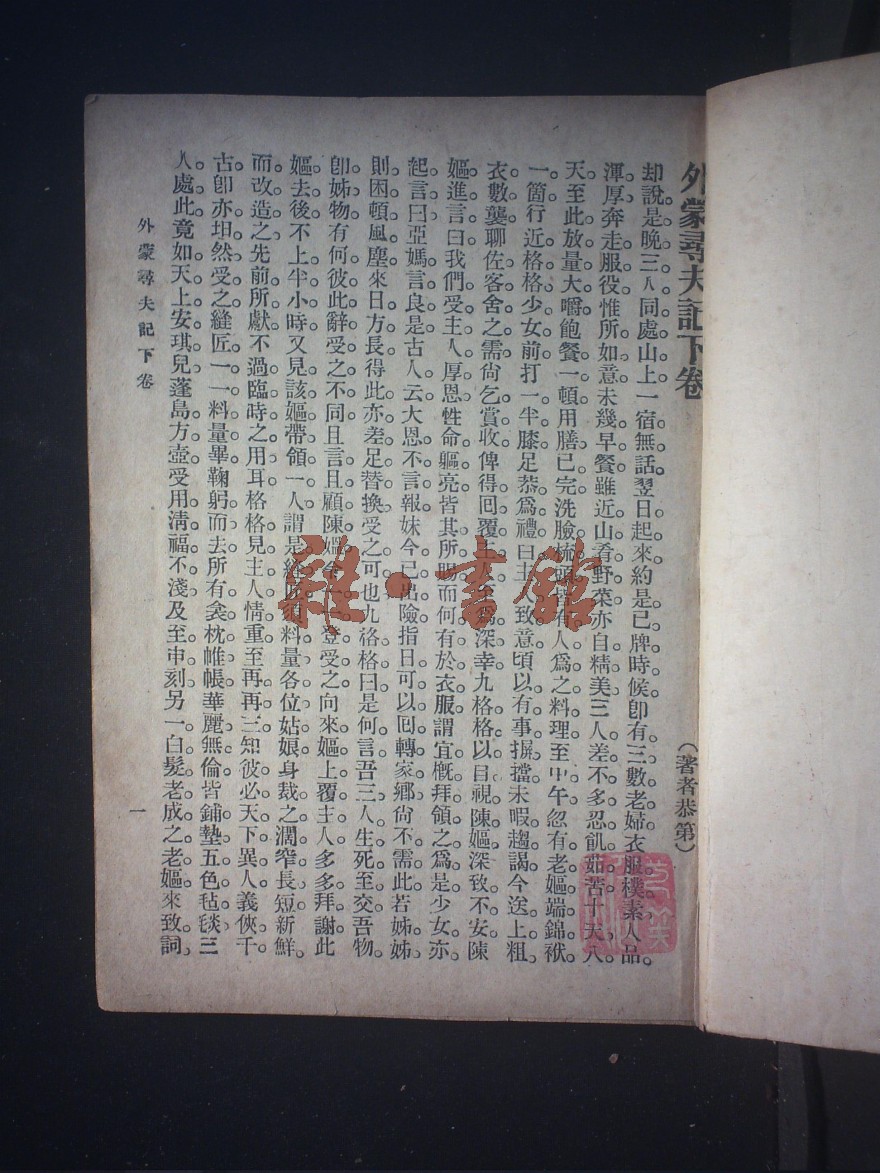 外蒙尋夫記下卷
（著者恭第）
却說是晚三人同處山上一宿無話翌日起來約是已牌時候卽有三數老婦衣服樸素人品。
渾厚奔走服役惟所如意未幾早餐雖近山肴野菜亦自精美三人差不多忍飢茹苦十天八。
天至此放量大嚼飽餐一頓用膳已完洗臉梳頭皆有人爲之料理至中午忽有老嫗端錦袱。
一箇行近格格少女前打一半膝足恭爲禮曰主致意頃以有事摒擋未暇趨謁今送上粗。
衣數襲聊佐客舍之需尙乞賞收俾得囘覆主人至爲深幸九格格以目視陳嫗深致不安陳
嫗進言曰我們受主人厚恩性命軀亮皆其所賜而何有於衣服謂宜慨拜領之爲是少女亦。
起言曰亞媽言良是古人云大恩不言報妹今已出險指日可以囘轉家鄉尙不需此若姊姊
則困頓風塵來日方長得此亦差足替換受之可也九格格曰是何言吾三人生死至交吾物。
卽姊物有何彼此辭受之不同且言且顧陳嫗令一一登受之向來嫗上覆主人多多拜謝此
嫗去後不上半小時又見該嫗帶領一人謂是縫匠須料量各位姑娘身裁之濶窄長短新鮮
而改造之先前所獻不過臨時之用耳格格見主人情重至再再三知彼必天下異人義俠千。
古卽亦坦然受之縫匠一一料量畢鞠躬而去所有衾枕帷帳華麗無倫皆鋪墊五色毡毯三
人處此竟如天上安琪兒蓬島方壺受用淸福不淺及至申刻另一白髮老成之老嫗來致詞。
外蒙尋夫記下卷
一
雜·書館